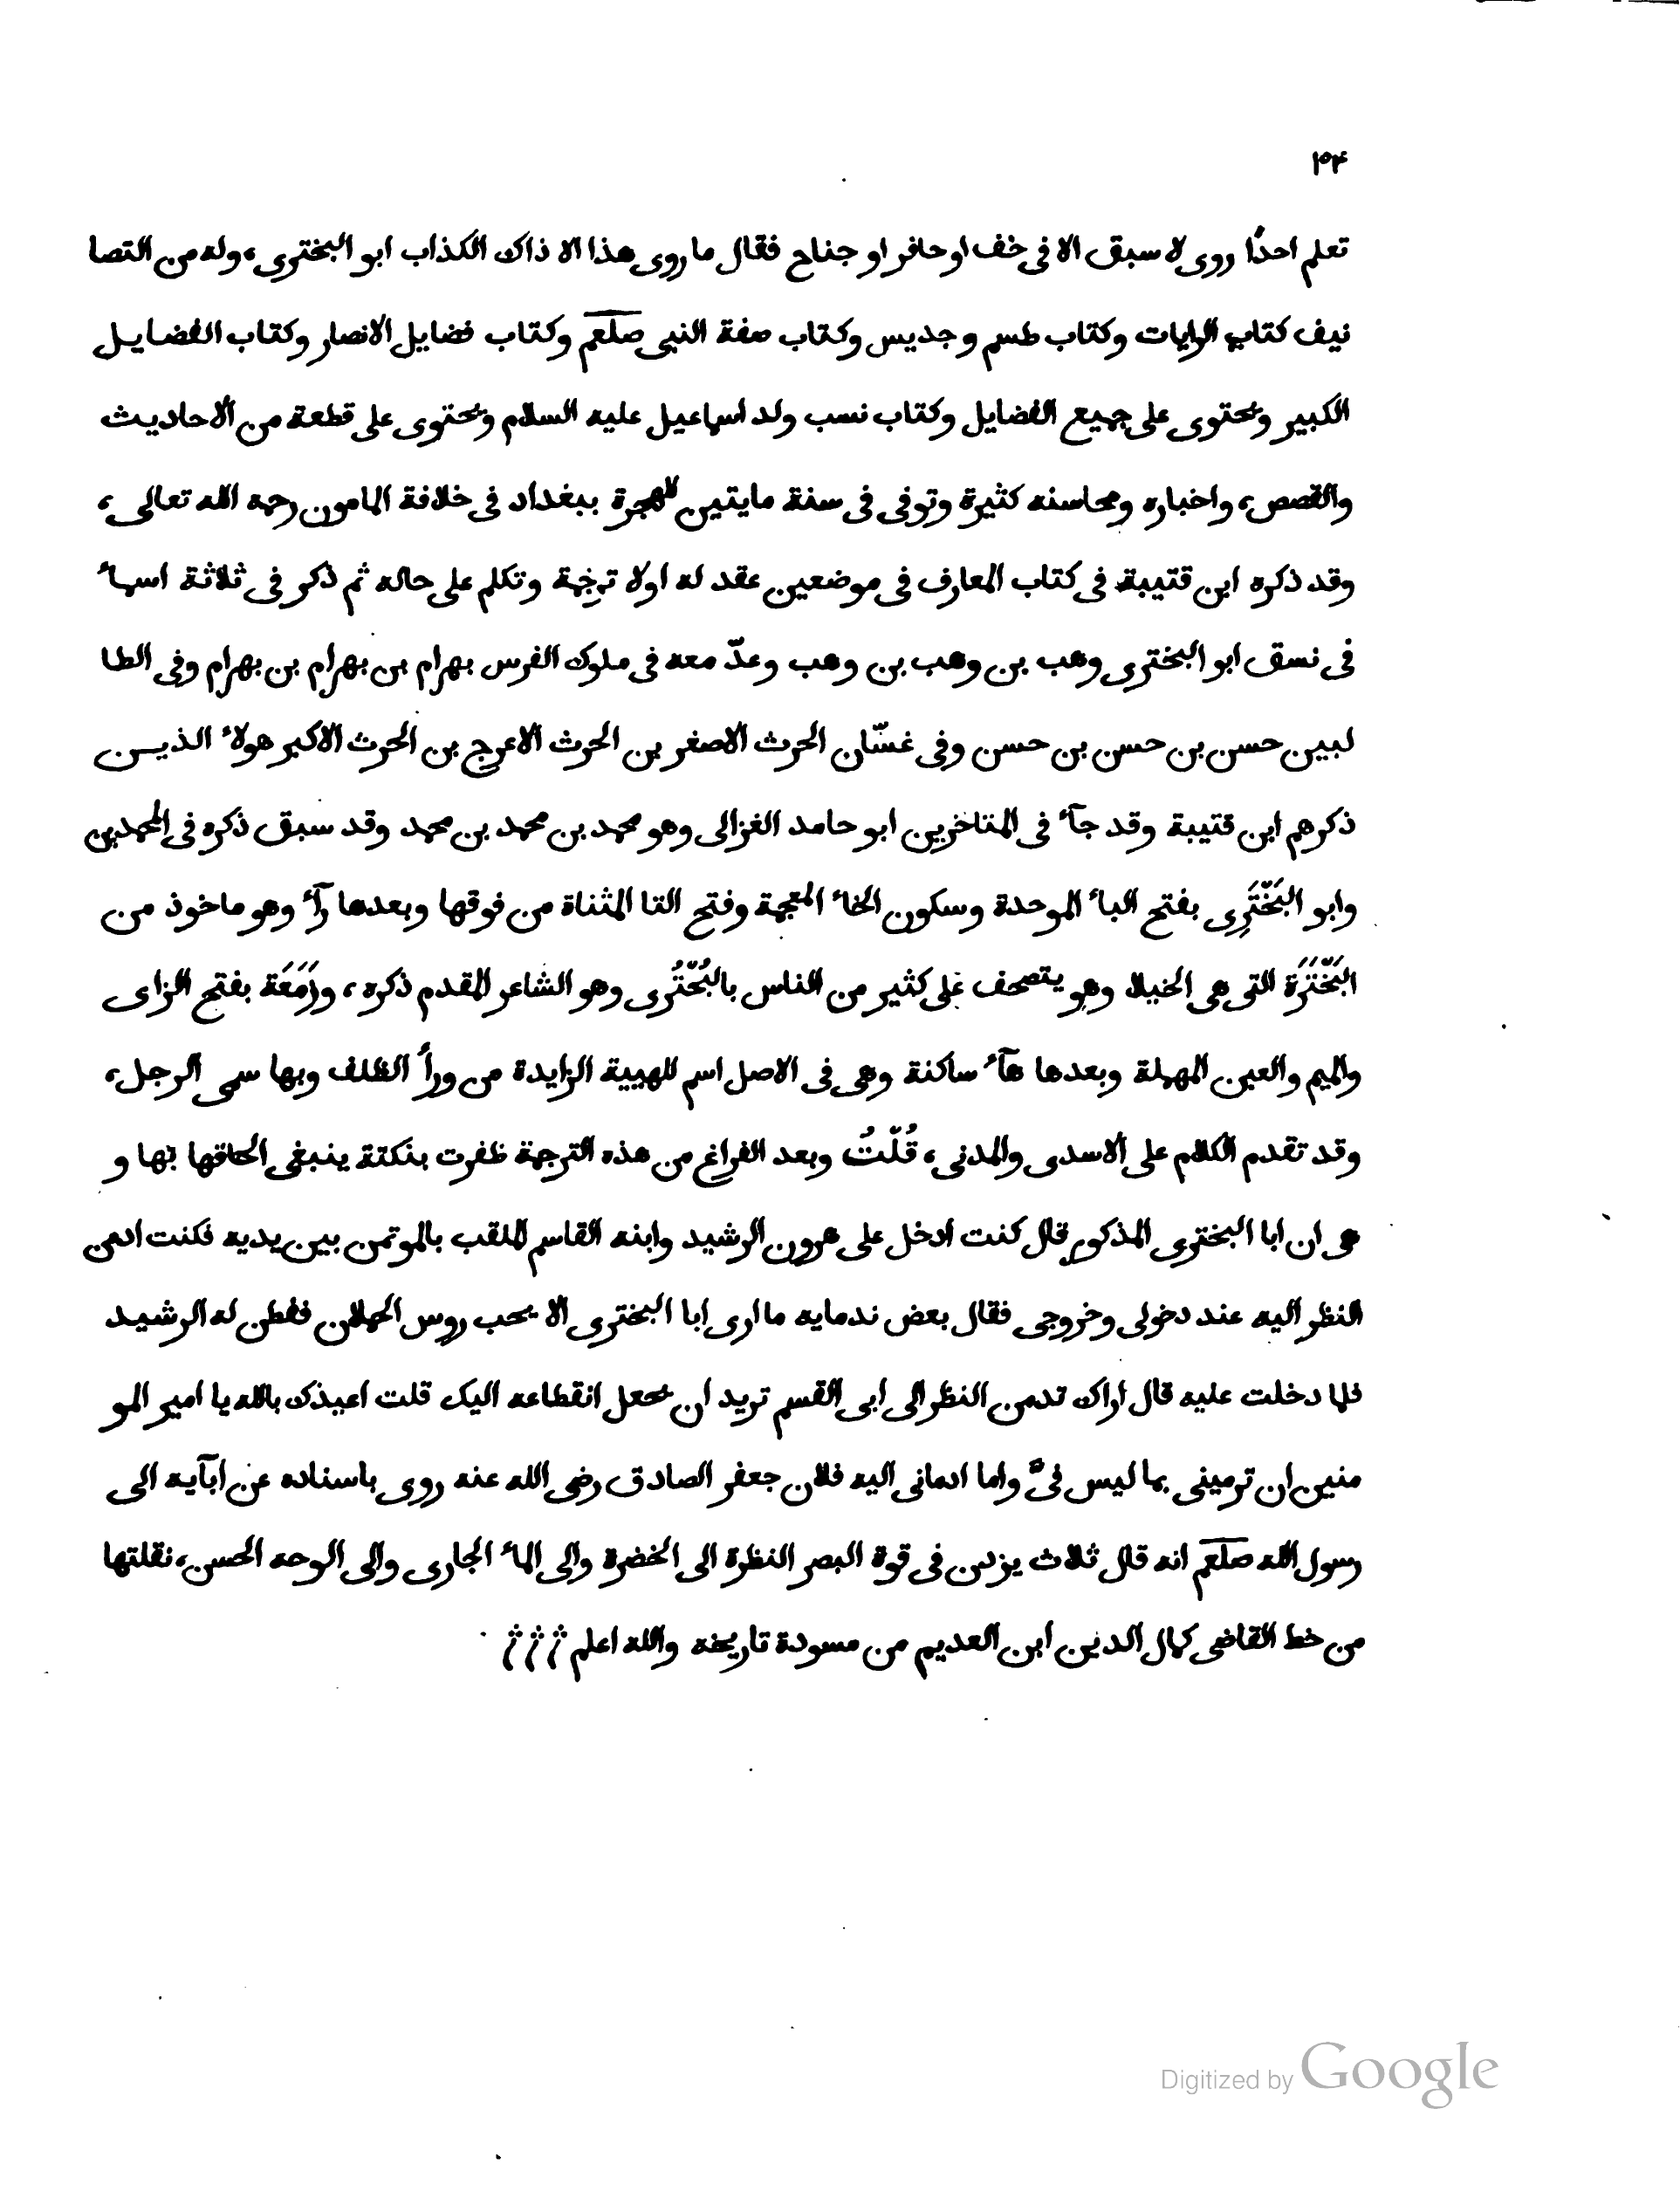 ١٣٤
تعلم احدًا روى لا سبق الا فى خف او حافر او جناح فقال ما روى هذا الا ذاك الكذاب ابو البخترى، وله من التصا
نيف كتاب الرايات وكتاب طسم وجديس وكتاب صفة النبى صلعم وكتاب فضايل الانصار وكتاب الفضايل
الكبير ويحتوى على جميع الفضايل وكتاب نسب ولد اسماعيل عليه السلام ويحتوى على قطعة من الاحاديث
والقصص، واخباره ومحاسنه كثيرة وتوفى فى سنة مايتين للهجرة ببغداد فى خلافة المامون رحمه الله تعالى،
وقد ذكره ابن قتيبة فى كتاب المعارف فى موضعين عقد له اولا ترجمة وتكلم على حاله ثم ذكر فى ثلاثة اسمائ
فى نسق ابو البخترى وهب بن وهب بن وهب وعدّ معه فى ملوك الفرس بهرام بن بهرام بن بهرام وفى الطا
لبيين حسن بن حسن بن حسن وفى غسّان الحرث الاصغر بن الحرث الاعرج بن الحرث الاكبر هولائ الذيـن
ذكرهم ابن قتيبة وقد جآئ فى المتاخرين ابو حامد الغزالى وهو محمد بن محمد بن محمد وقد سبق ذكره فى المحمدين
وابو البَخْتَرِى بفتح البائ الموحدة وسكون الخائ المعجمة وفتح التا المثناة من فوقها وبعدها رآئ وهو ماخوذ من
البَخْتَرَة التى هى الخيلا وهو يتصحف على كثير من الناس بالبُحْتُرى وهو الشاعر المقدم ذكره، وزَمَعَة بفتح الزاى
والميم والعين المهملة وبعدها هآئ ساكنة وهى فى الاصل اسم للهيية الزايدة من ورأ الظلف وبها سمى الرجل،
وقد تقدم الكلام على الاسدى والمدنى، قُلْتُ وبعد الفراغ من هذه الترجمة ظفرت بنكتة ينبغى الحاقها بها و
هى ان ابا البخترى المذكور قال كنت ادخل على هرون الرشيد وابنه القاسم الملقب بالموتمن بين يديه فكنت ادمن
النظر اليه عند دخولى وخروجى فقال بعض ندمايه ما ارى ابا البخترى الا يحب روس الحملان ففطن له الرشيد
فلما دخلت عليه قال اراك تدمن النظر الى ابى القسم تريد ان تجعل انقطاعه اليك قلت اعيذك بالله يا امير المو
منين ان ترمينى بما ليس فىّ واما ادمانى اليه فلان جعفر الصادق رضى الله عنه روى باسناده عن ابآيه الى
رسول الله صلعم انه قال ثلاث يزدن فى قوة البصر النظرة الى الخضرة والى المائ الجارى والى الوجه الحسن، نقلتها
من خط القاضى كمال الدين ابن العديم من مسودة تاريخه والله اعلم
Digitized by Google